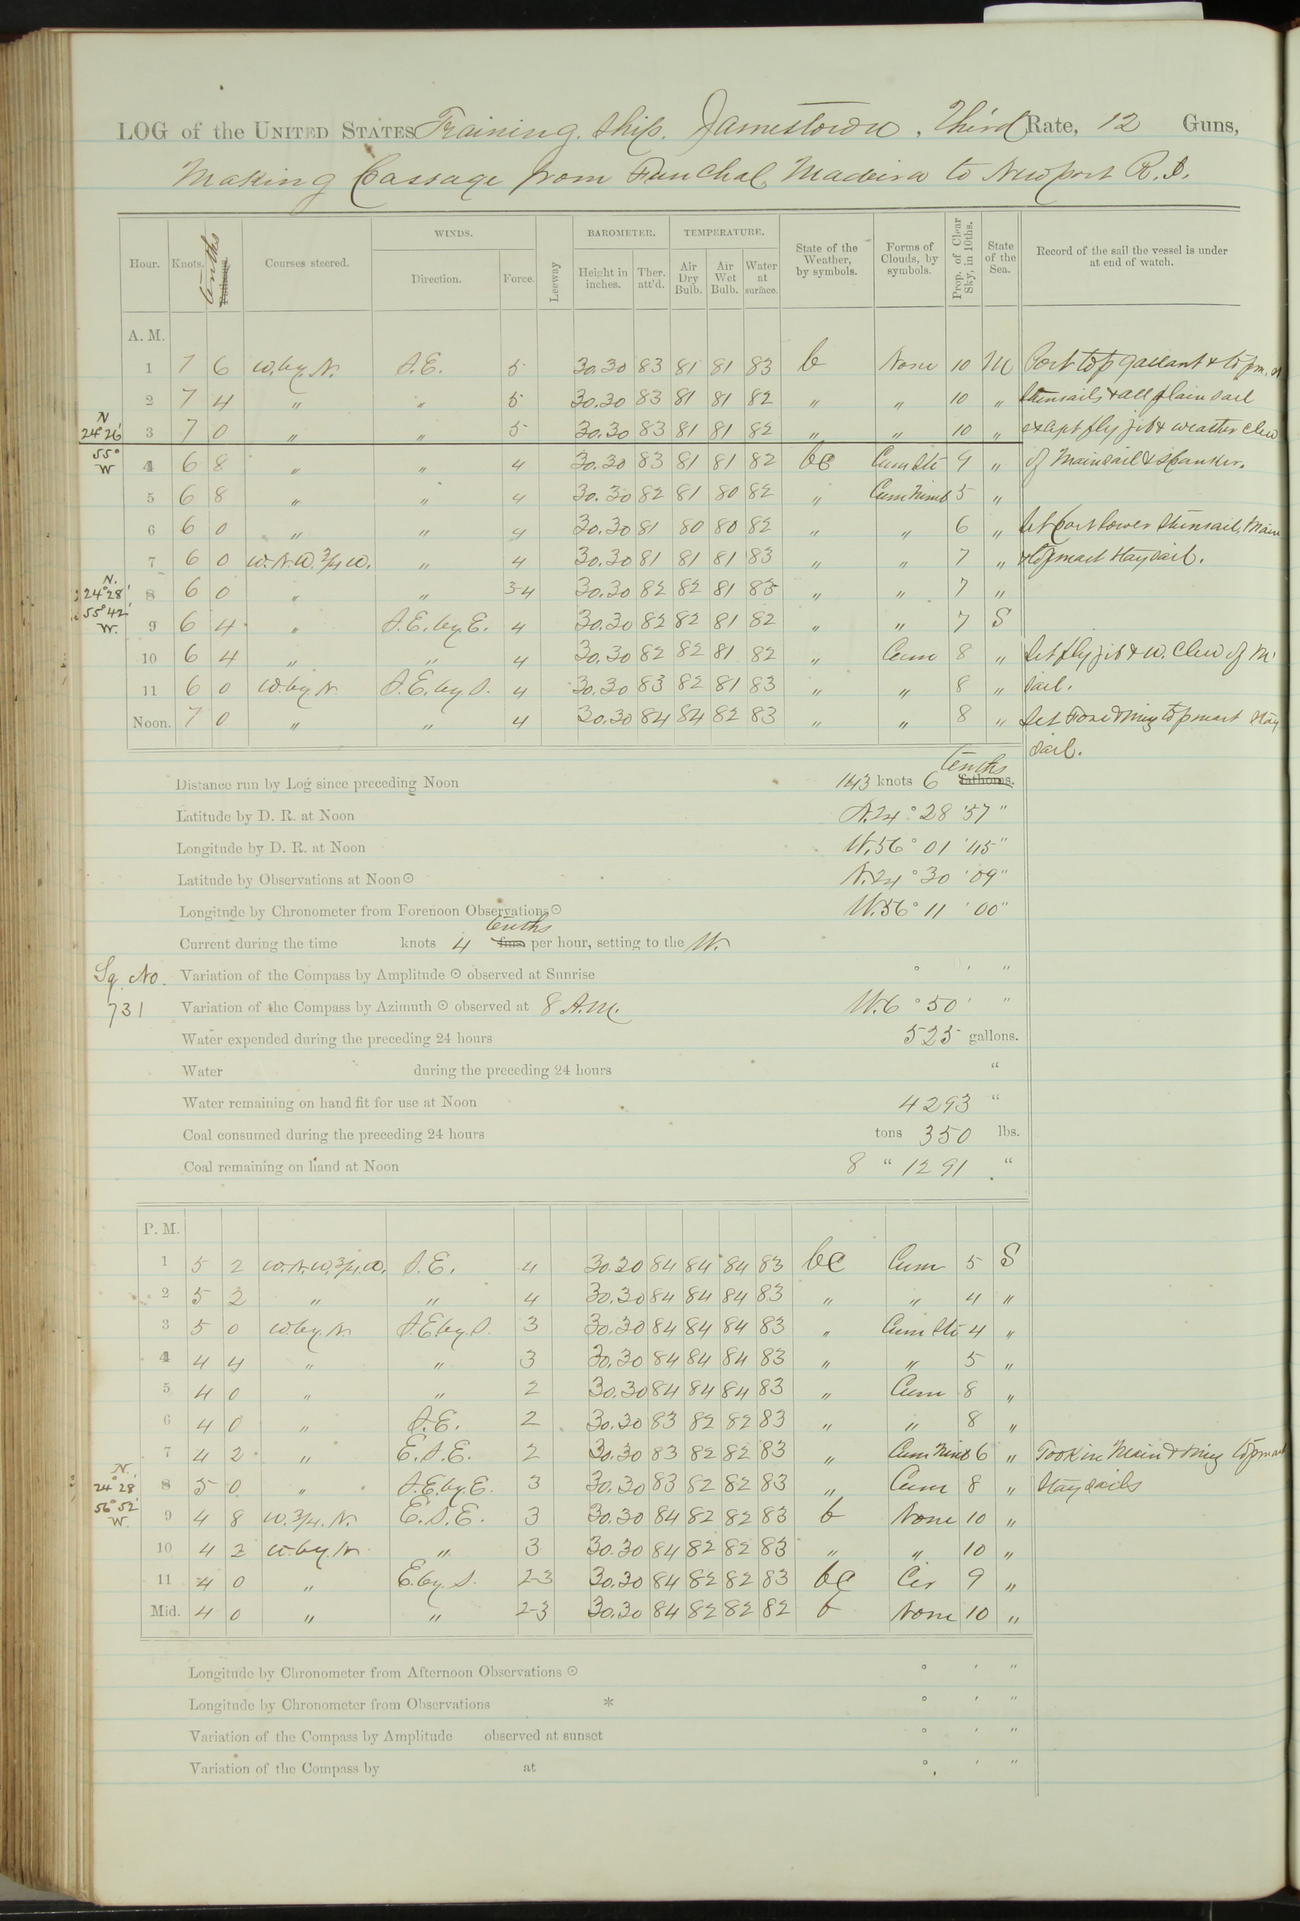 LOG of the UNITED STATES Training Ship Jamestown, Third Rate, 12 Guns,
Making Passage from Funchal, Madeira to Newport R.I.
WINDS. BAROMETER. TEMPERATURE.
Hour. Knots. tenths Courses steered. Direction. Force. Leeway Height in inches. Ther. att'd. Air Dry Bulb. Air Wet Bulb. Water at surface. State of the Weather, by symbols. Forms of Clouds, by symbols. Prop. of Clear Sky, in 10ths. State of the Sea. Record of the sail the vessel is under at end of watch.
A. M.
1 7 6 W. by N. S.E. 5 30.30 83 81 81 83 b None 10 M Port top gallant & topm.
2 7 4 " " 5 30.30 83 81 81 82 " " 10 " stunsails & all plain sail
N 24° 26'
3 7 0 " " 5 30.30 83 81 81 82 " " 10 " except fly jib & weather clew
55° W
4 6 8 " " 4 30.30 83 81 81 82 bc Cum Sti 9 " of Mainsail & Spanker.
5 6 8 " " 4 30.30 82 81 80 82 " Cum Nimb 5 "
6 6 0 " " 4 30.30 81 80 80 82 " " 6 " Set Port lower stunsail, Main
7 6 0 W.N.W. 3/4 W. " 4 30.30 81 81 81 83 " " 7 " topmast staysail.
N. 24° 28'
8 6 0 " " 3-4 30.30 82 82 81 83 " " 7 "
55° 42' W.
9 6 4 " S.E. by E. 4 30.30 82 82 81 82 " " 7 S
10 6 4 " " 4 30.30 82 82 81 82 " Cum 8 " Set fly jib & W. Clew of M.
11 6 0 W. by N. S.E. by S. 4 30.30 83 82 81 83 " " 8 " sail.
Noon. 7 0 " " 4 30.30 84 84 82 83 " " 8 " Set Fore & Miz topmast stay
sail.
Distance run by Log since preceding Noon 143 knots 6 tenths fathoms.
Latitude by D. R. at Noon N. 24° 28' 57"
Longitude by D. R. at Noon W. 56° 01' 45"
Latitude by Observations at Noon ☉ N. 24° 30' 09"
Longitude by Chronometer from Forenoon Observations ☉ W. 56° 11' 00"
Current during the time knots 4 tenths fms. per hour, setting to the W.
Variation of the Compass by Amplitude ☉ observed at Sunrise ° ' "
Sq. No. 731
Variation of the Compass by Azimuth ☉ observed at 8 A.M. W. 6° 50' "
Water expended during the preceding 24 hours 525 gallons.
Water during the preceding 24 hours "
Water remaining on hand fit for use at Noon 4293 "
Coal consumed during the preceding 24 hours tons 350 lbs.
Coal remaining on hand at Noon 8 " 1291 "
P. M.
1 5 2 W.N.W. 3/4 W. S.E. 4 30.30 84 84 84 83 bc Cum 5 S
2 5 2 " " 4 30.30 84 84 84 83 " " 4 "
3 5 0 W. by N. S.E. by S. 3 30.30 84 84 84 83 " Cum Sti 4 "
4 4 4 " " 3 30.30 84 84 84 83 " " 5 "
5 4 0 " " 2 30.30 84 84 84 83 " Cum 8 "
6 4 0 " S.E. 2 30.30 83 82 82 83 " " 8 "
7 4 2 " E.S.E. 2 30.30 83 82 82 83 " Cum Nimb 6 " Took in Main & Miz topmast
N. 24° 28'
8 5 0 " S.E. by E. 3 30.30 83 82 82 83 " Cum 8 " Staysails
56° 52' W.
9 4 8 W. 3/4 N. E.S.E. 3 30.30 84 82 82 83 b None 10 "
10 4 2 W. by N. " 3 30.30 84 82 82 83 " " 10 "
11 4 0 " E. by S. 2-3 30.30 84 82 82 83 bc Cir 9 "
Mid. 4 0 " " 2-3 30.30 84 82 82 82 b None 10 "
Longitude by Chronometer from Afternoon Observations ☉ ° ' "
Longitude by Chronometer from Observations * ° ' "
Variation of the Compass by Amplitude observed at sunset ° ' "
Variation of the Compass by at ° ' "